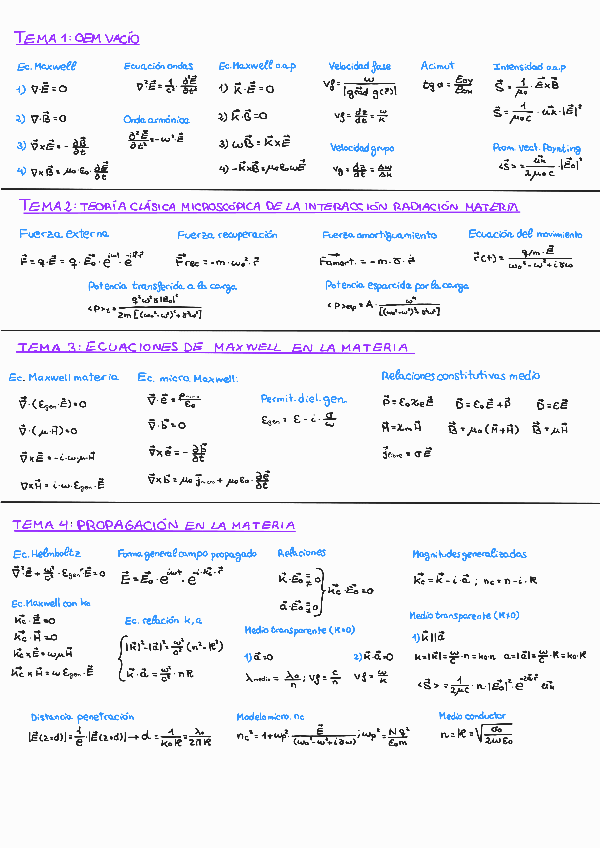 TEMA 1: OEM VACÍO
Ec. Maxwell
1) ∇·E⃗ = 0
2) ∇·B⃗ = 0
3) ∇⃗xE⃗ = - ∂B⃗/∂t
4) ∇xB⃗ = μ₀ε₀·∂E⃗/∂t
Ecuación ondas
∇²E⃗ = 1/c²·∂²E⃗/∂t²
Onda armónica
∂²E⃗/∂t² = -ω²·E⃗
Ec. Maxwell o.a.p
1) K⃗·E⃗ = 0
2) K⃗·B⃗ = 0
3) ωB⃗ = K⃗xE⃗
4) -K⃗xB⃗ = μ₀ε₀ωE⃗
Velocidad fase
vf = ω/|grad g(r⃗)|
vf = dz/dt = ω/k
Velocidad grupo
vg = dz/dt = Δω/Δk
Acimut
tg α = E₀y/E₀x
Intensidad o.a.p
S⃗ = 1/μ₀·E⃗xB⃗
S⃗ = 1/μ₀c·u⃗k·|E⃗|²
Prom. Vect. Poynting
<S⃗> = u⃗k/2μ₀c·|E⃗₀|²
TEMA 2: TEORÍA CLÁSICA MICROSCÓPICA DE LA INTERACCIÓN RADIACIÓN MATERIA
Fuerza externa
F⃗ = q·E⃗ = q·E⃗₀·e^iωt·e^-ik⃗·r⃗
Fuerza recuperación
F⃗rec = -m·ω₀²·r⃗
Fuerza amortiguamiento
F⃗amort. = -m·γ·r⃗
Ecuación del movimiento
r⃗(t) = q/m·E⃗/ω₀²-ω²+iγω
Potencia transferida a la carga
<P>t = q²ω²γ|E₀|²/2m[(ω₀²-ω²)²+γ²ω²]
Potencia esparcida por la carga
<P>esp = A·ω⁴/[(ω₀²-ω²)²+γ²ω²]
TEMA 3: ECUACIONES DE MAXWELL EN LA MATERIA
Ec. Maxwell materia
∇⃗·(εgen·E⃗) = 0
∇⃗·(μ·H⃗) = 0
∇⃗xE⃗ = -i·ω·μ·H⃗
∇xH⃗ = i·ω·εgen·E⃗
Ec. micro Maxwell:
∇⃗·b⃗ = 0
∇⃗xe⃗ = -∂b⃗/∂t
Permit. diel. gen.
εgen = ε - i·σ/ω
Relaciones constitutivas medio
P⃗ = ε₀χeE⃗ D⃗ = ε₀E⃗+P⃗ D⃗ = εE⃗
M⃗ = χmH⃗ B⃗ = μ₀(M⃗+H⃗) B⃗ = μH⃗
TEMA 4: PROPAGACIÓN EN LA MATERIA
Ec. Helmholtz
∇²·E⃗ + ω²/c²·εgen·E⃗ = 0
Forma general campo propagado
E⃗ = E⃗₀·e^iωt·e^-iK⃗c·r⃗
Relaciones
K⃗·E⃗₀ ≠ 0
K⃗c·E⃗₀ = 0
a⃗·E⃗₀ ≠ 0
Magnitudes generalizadas
K⃗c = K⃗-i·a⃗; nc = n-i·K
Ec. Maxwell con kc
K⃗c·E⃗ = 0
K⃗c·H⃗ = 0
K⃗cxE⃗ = ωμH⃗
K⃗cxH⃗ = ωεgen·E⃗
Ec. relación k,a
|K⃗|²-|a⃗|² = ω²/c²(n²-K²)
K⃗·a⃗ = ω²/c²·nK
Medio transparente (K=0)
1) a⃗ = 0 2) K⃗·a⃗ = 0
λmedio = λ₀/n; vf = c/n vf = ω/k
Medio transparente (K≠0)
1) K⃗||a⃗
k = |K⃗| = ω/c·n = k₀·n a = |a⃗| = ω/c·K = k₀·K
<S⃗> = 1/2μc·n·|E₀|²·e^-2a⃗·r⃗·u⃗k
Distancia penetración
|E⃗(z=d)| = 1/e·|E⃗(z=0)| → d = 1/k₀K = λ₀/2πK
Modelo micro. nc
nc² = 1+ωp²·E⃗/(ω₀²-ω²+iγω); ωp² = Nq²/ε₀m
Medio conductor
n = K = √σ₀/2ωε₀